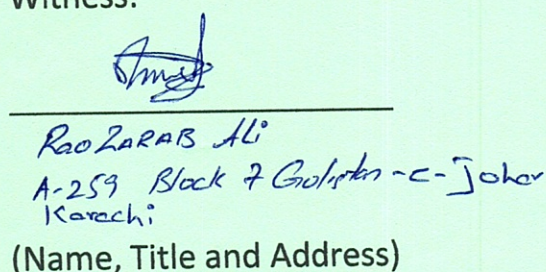 Witness:
Rao ZARAB Ali
A-259 Block 7 Golistan-e-Johor
Karachi
(Name, Title and Address)